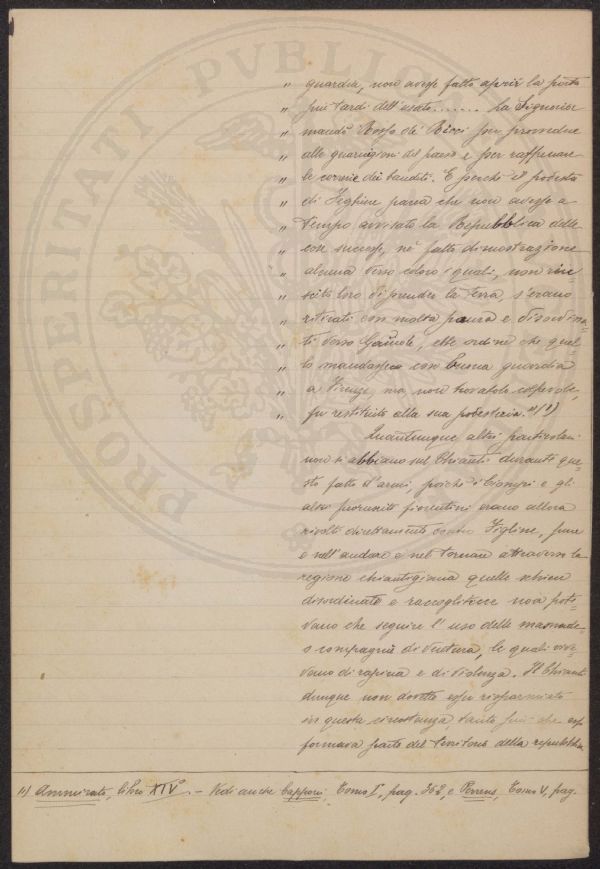 PROSPERITATI PVBLICAE
" guardia, non avesse fatto aprir la porta
" più tardi dell'usato....... La Signoria
" mandò Rosso de' Ricci per provvedere
" alle guarnigioni del paese e per raffrenare
" le correrie dei banditi. E perchè il potestà
" di Fighine parea che non avesse a
" tempo avvisato la Repubblica delle
" cose successe, nè fatto dimostrazione
" alcuna verso coloro i quali, non riu=
" scito loro di prender la terra, s'erano
" ritirati con molta paura e disordina=
" ti verso Gaiole, ebbe ordine che quel=
" lo mandasse con buona guardia
" a Firenze, ma non trovatolo colpevole,
" fu restituito alla sua potesteria. "(1)
Quantunque altri particolari
non si abbiano sul Chianti durante que=
sto fatto d'armi, poichè i Ciompi e gli
altri fuorusciti fiorentini erano allora
rivolti direttamente contro Figline, pure
e nell'andare e nel tornare attraverso la
regione chiantigiana quelle schiere
disordinate e raccogliticce non pote=
vano che seguire l'uso delle masnade
o compagnie di ventura, le quali vive=
vano di rapina e di violenza. Il Chianti
dunque non dovette esser risparmiato
in questa circostanza tanto più che esso
formava parte del territorio della repubblica
(1) Ammirato, libro XIV°. - Vedi anche Capponi, Tomo I°, pag. 362, e Perrens, Tomo V, pag.